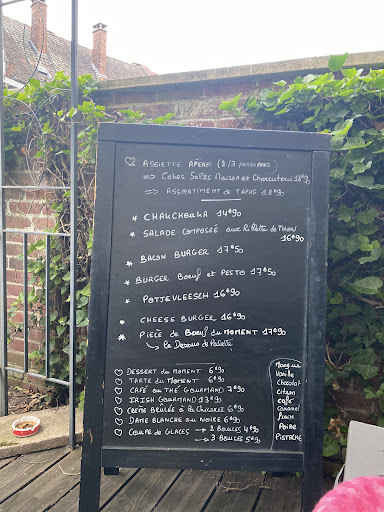 ♡ ASSIETTE APERO (2/3 personnes)
=> Cakes Salés Maison et Charcuterie 18€90
=> ASSORTIMENT de TAPAS 18€90
* CHAKCHOUKA 14€90
* SALADE COMPOSÉE aux Rillettes de THON
16€90
* BACON BURGER 17€50
* BURGER Boeuf et PESTO 17€50
* POTJEVLEESCH 16€90
* CHEESE BURGER 16€90
* PIÈCE de Boeuf du MOMENT 17€90
↳ Le Dessous de Palette
♡ DESSERT du MOMENT 6€90
♡ TARTE du MOMENT 6€90
♡ CAFÉ ou THÉ GOURMAND 7€90
♡ IRISH GOURMAND 13€90
♡ CRÈME BRÛLÉE à la Chicorée 6€90
♡ DAME BLANCHE ou NOIRE 6€90
♡ COUPE de GLACES → 2 BOULES 4€90
→ 3 BOULES 5€90
Mangue
Vanille
Chocolat
Citron
Café
Caramel
Poire
PISTACHE